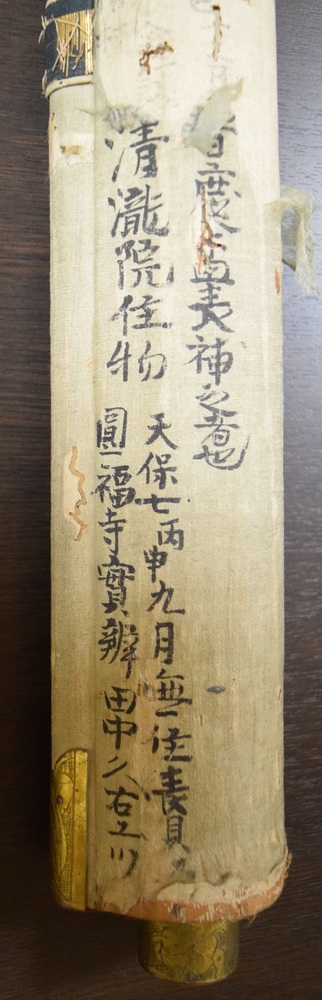 慶画表補之者也
清瀧院住物
天保七丙申九月無住表具之
圓福寺實辨 田中久右工門